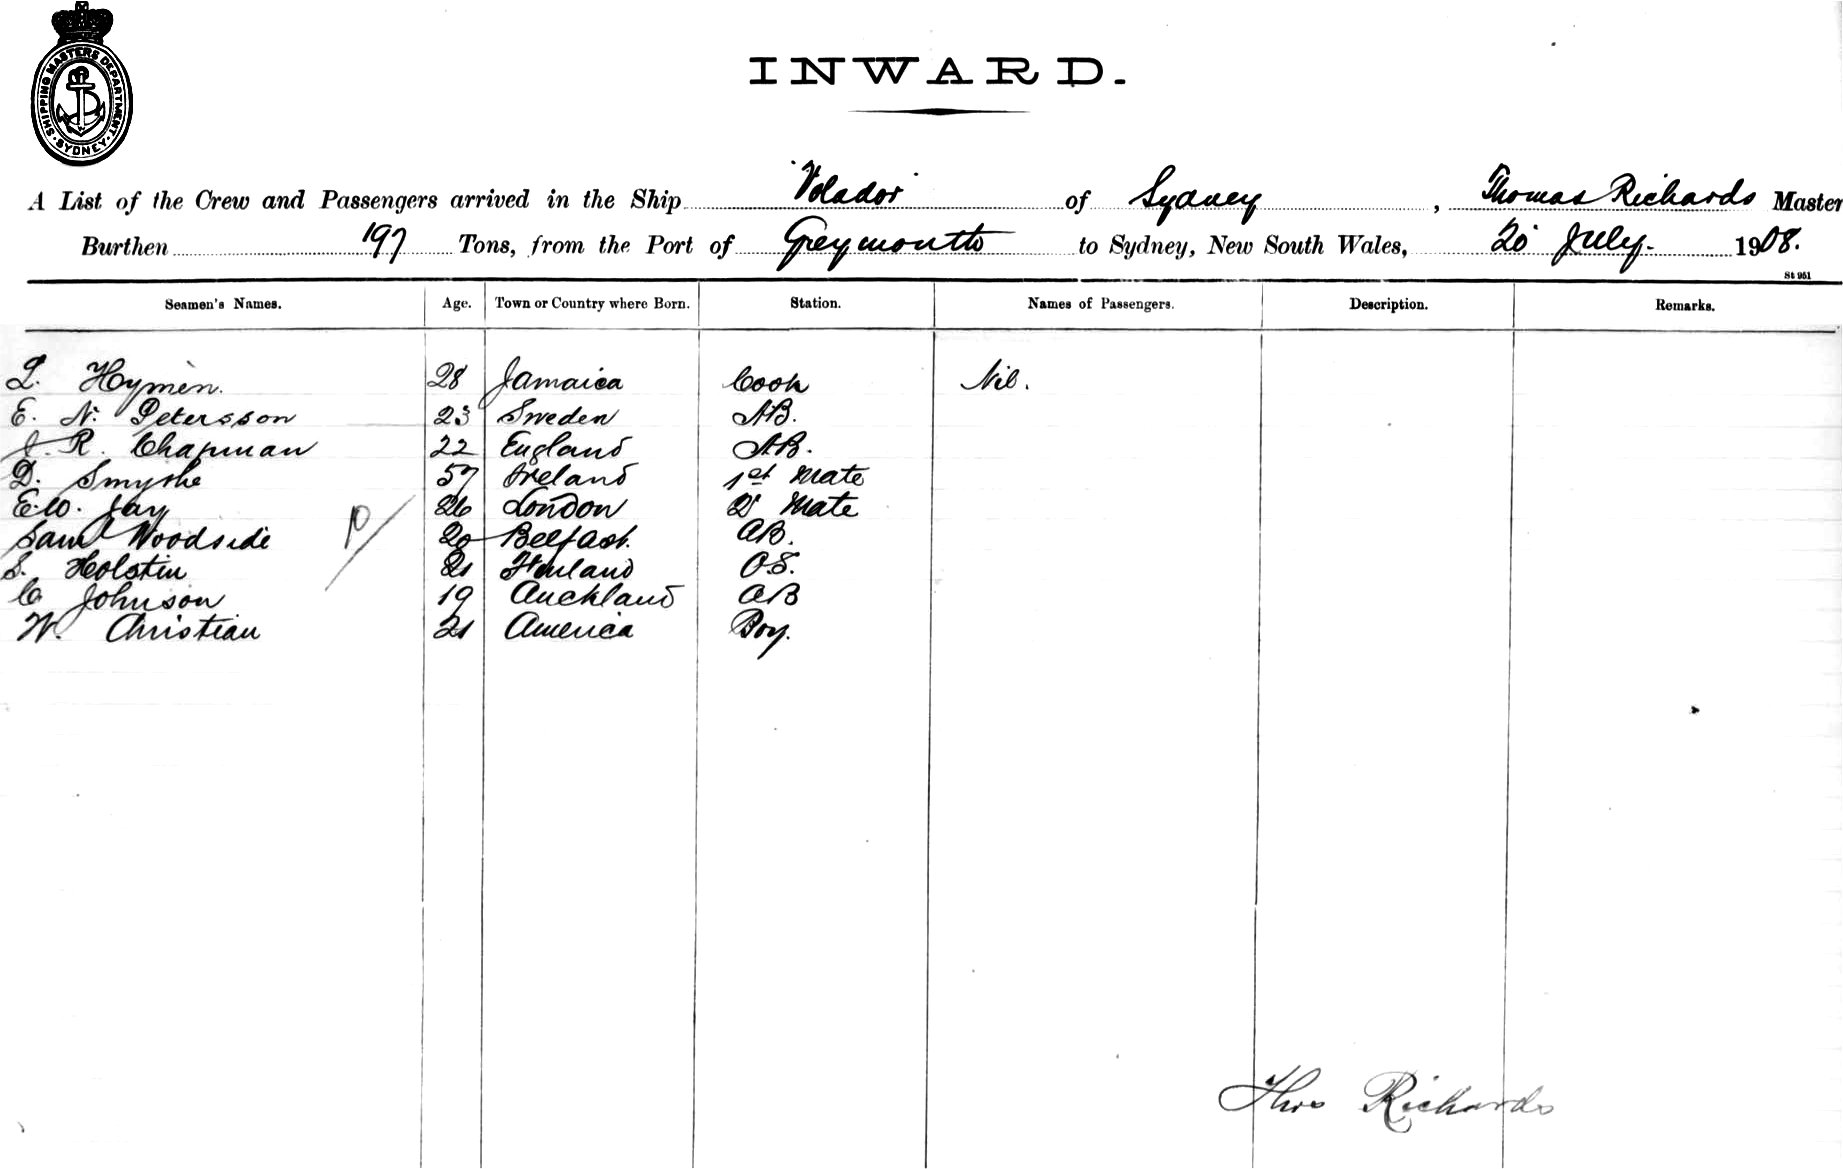 SHIPPING MASTERS DEPARTMENT · SYDNEY ·
INWARD.
A List of the Crew and Passengers arrived in the Ship Volador of Sydney, Thomas Richards Master
Burthen 197 Tons, from the Port of Greymouth to Sydney, New South Wales, 20 July. 1908.
St 951
Seamen's Names. Age. Town or Country where Born. Station. Names of Passengers. Description. Remarks.
L. Hymen. 28 Jamaica Cook Nil.
E. N. Petersson 23 Sweden AB.
J. R. Chapman 22 England AB.
D. Smythe 57 Ireland 1st Mate
E.W. Jay 26 London 2d Mate
Saml Woodside 20 Belfast. AB.
S. Holstin 21 Finland OS.
C Johnson 19 Auckland AB
W. Christian 21 America Boy.
Thos Richards